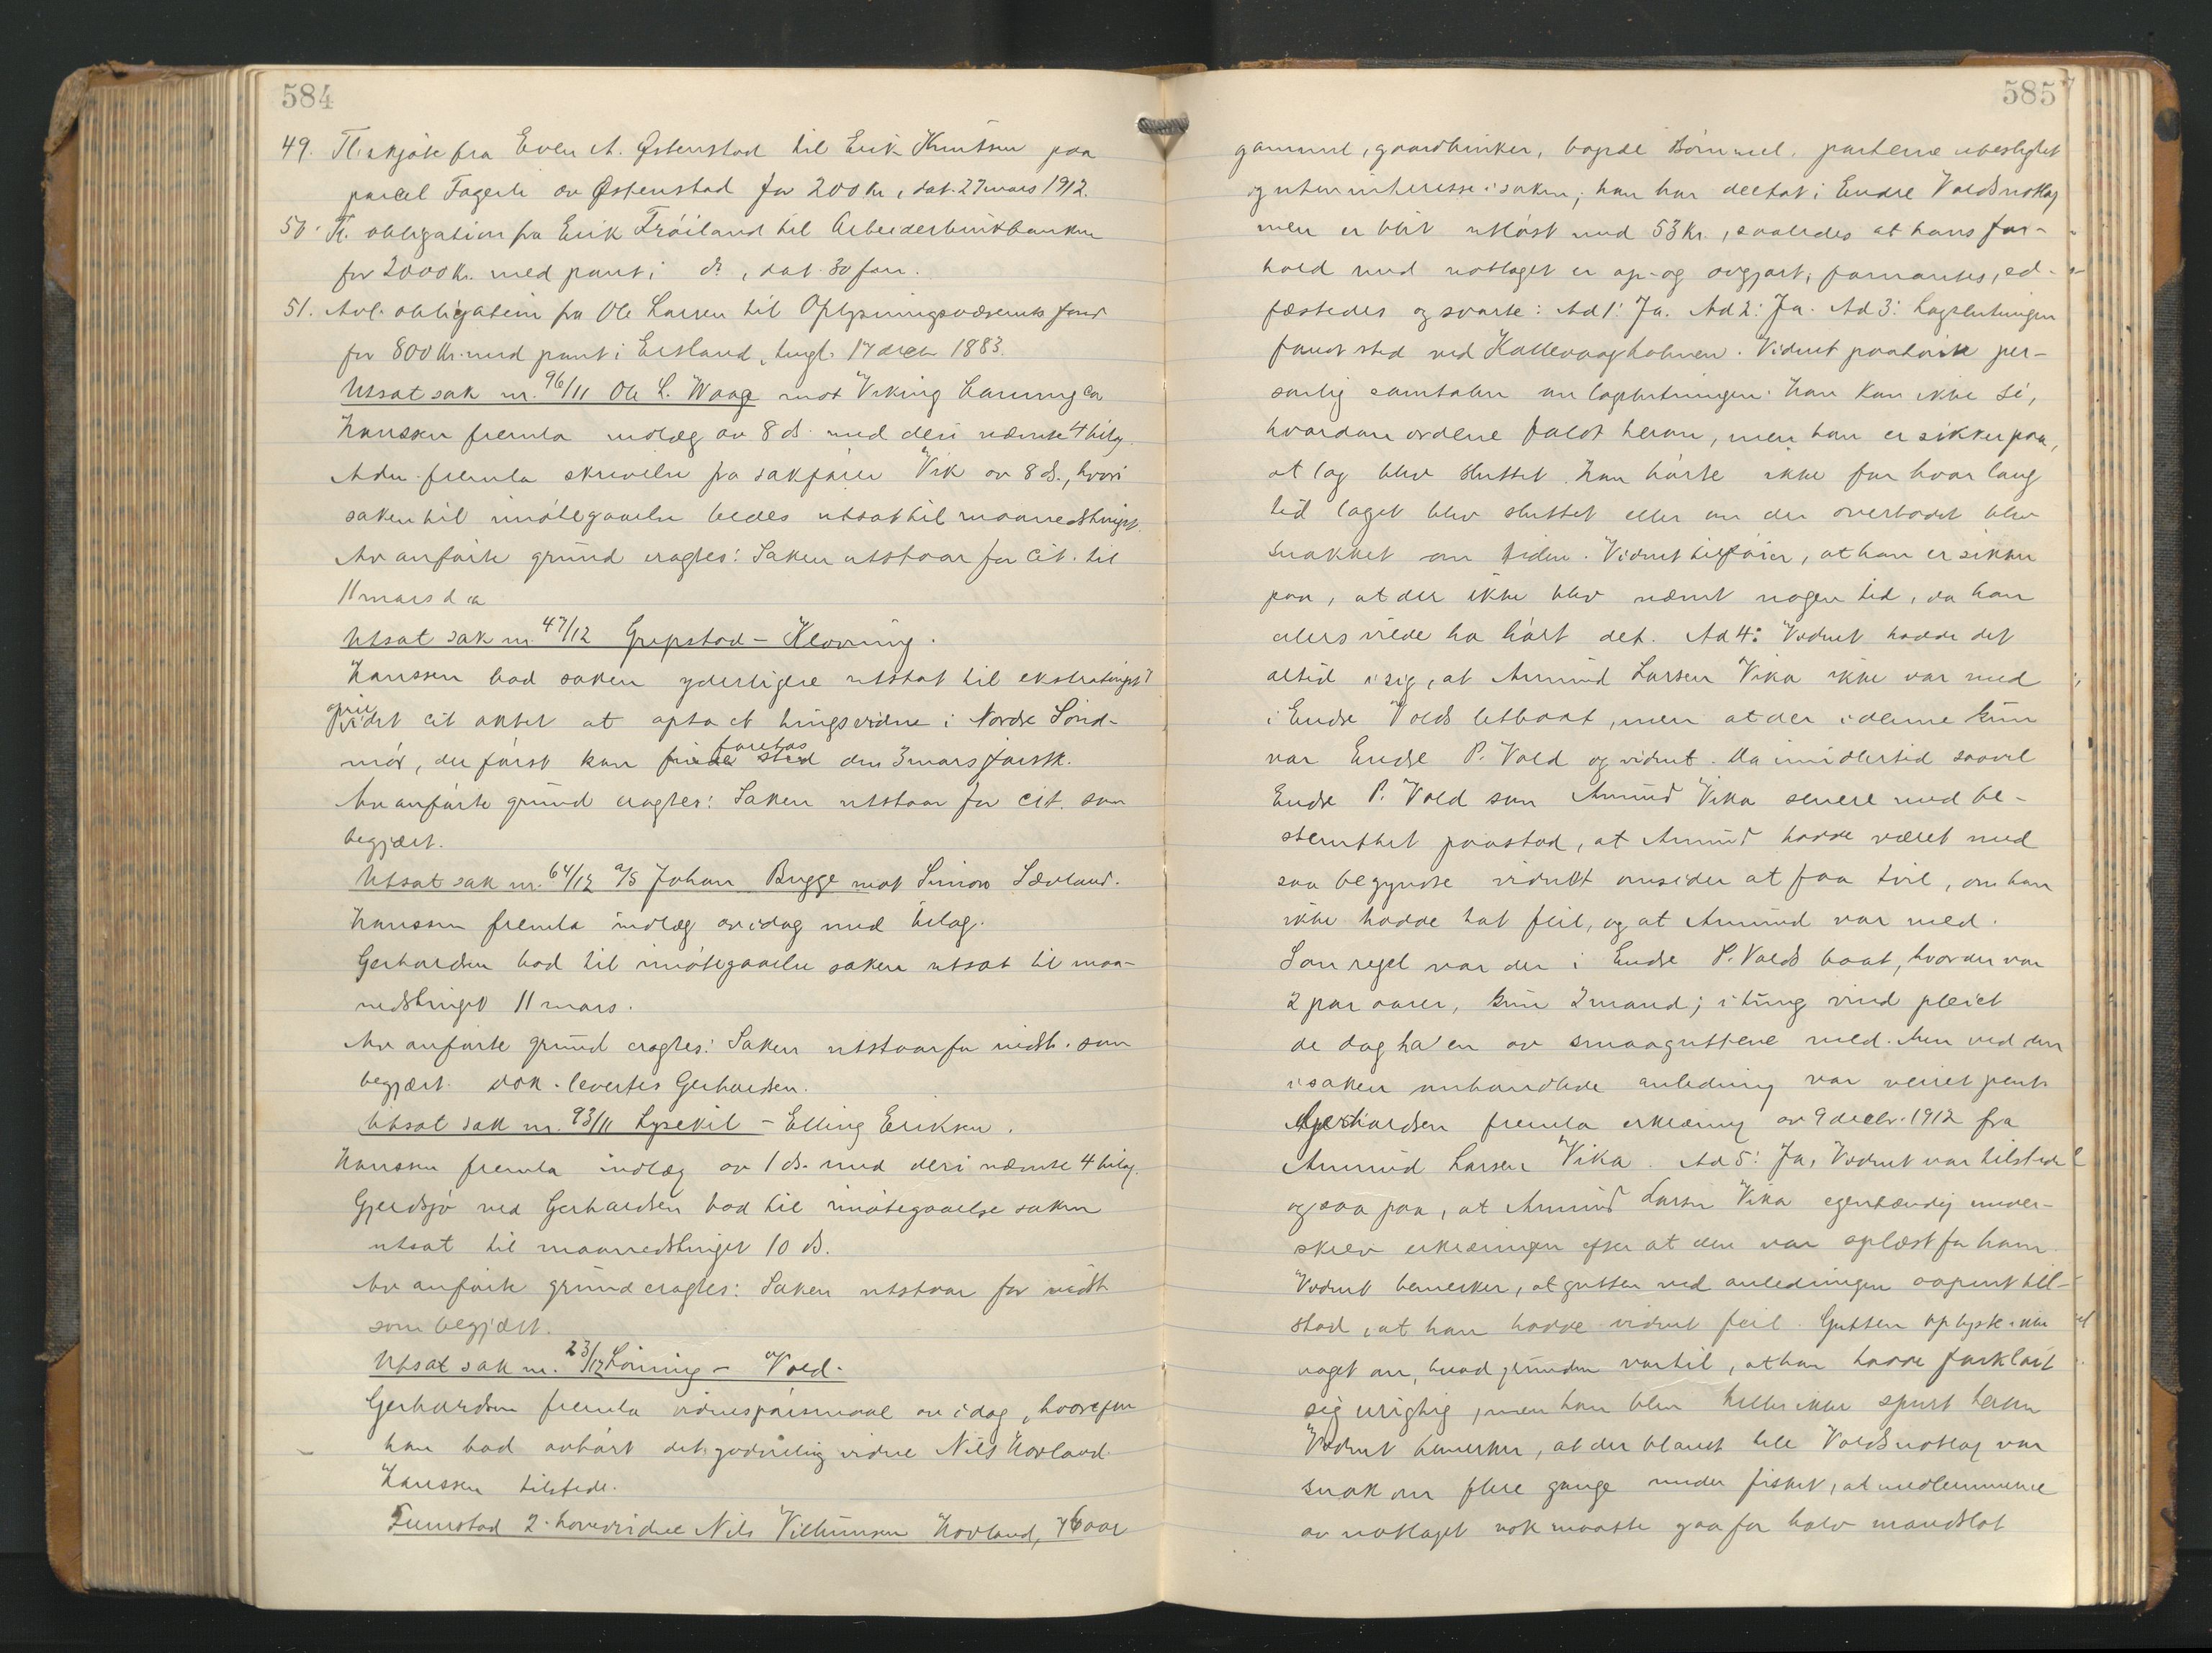 584
49. Tl. skjøte fra Even A. Østenstad til Erik Knutsen paa
parcel Fagerli av Østenstad for 200 kr, dat. 27 mars 1912.
50. Tl. obligation fra Erik Fröiland til Arbeiderbrukbanken
for 2000 kr. med pant i do, dat. 30 jan.
51. Avl. obligation fra Ole Larsen til Oplysningsvæsenets fond
for 800 kr. med pant i Eisland, tingl. 17 decbr 1883.
Utsat sak nr. 96/11 Ole L. Waage mot Viking Canning Co
Hanssen fremla indlæg av 8 ds. med deri nævnte 4 bilag.
Adm. fremla skrivelse fra sakfører Vik av 8 ds., hvori
saken til imötegaaelse bedes utsat til maanedstinget.
Av anførte grund eragtes: Saken utstaar for Cit. til
11 mars d. a.
Utsat sak nr. 47/12 Grepstad - Klovning.
Hanssen bad saken yderligere utsat til ekstratinget
idet cit. agtet at opta et tingsvidne i Nordre Sönd-
mör, der först kan foretas den 3 mars förstk.
Av anförte grund eragtes: Saken utstaar for cit. som
begjært.
Utsat sak nr. 64/12 A/S Johan Bugge mot Simon Sævland.
Hanssen fremla indlæg av idag med bilag.
Gerhardsen bad til imötegaaelse saken utsat til maa-
nedstinget 11 mars.
Av anförte grund eragtes: Saken utstaar for indst. som
begjært. Dok. levertes Gerhardsen.
Utsat sak nr. 93/11 Lysekil - Elling Eriksen.
Hanssen fremla indlæg av 1 ds. med deri nævnte 4 bilag.
Gjerdsjö ved Gerhardsen bad til imötegaaelse saken
utsat til maanedstinget 10 ds.
Av anförte grund eragtes: Saken utstaar for indst.
som begjært.
Utsat sak nr. 23/12 Löning - Vold.
Gerhardsen fremla vidnespörsmaal av idag, hvorefter
han bad avhört det godvillig vidne Nils Hovland.
Hanssen tilstede.
Fremstod 2. hovedvidne Nils Villumsen Hovland, 46 aar
585
gammel, gaardbruker, bopæl Bömmel, parterne ubeslegtet
og uten interesse i saken; han har deltat i Endre Volds notlag
men er blit utlöst med 53 kr., saaledes at hans for-
hold med notlaget er op- og avgjort; formantes, ed-
fæstedes og svarte: Ad 1: Ja. Ad 2: Ja. Ad 3: Lagslutningen
fandt sted ved Kallevaagholmen. Vidnet paahörte per-
sonlig samtalen om lagslutningen. Han kan ikke si,
hvordan ordene faldt herom, men han er sikker paa,
at lag blev sluttet. Han hörte ikke for hvor lang
tid laget blev sluttet eller om der overhodet blev
snakket om tiden. Vidnet tilföier, at han er sikker
paa, at der ikke blev nævnt nogen tid, da han
ellers vilde ha hört det. Ad 4: Vidnet hadde det
altid i sig, at Amund Larsen Vika ikke var med
i Endre Volds letbaat, men at der i denne kun
var Endre P. Vold og vidnet. Da imidlertid saavel
Endre P. Vold som Amund Vika senere med be-
stemthet paastod, at Amund hadde været med
saa begyndte vidnet omsider at faa tvil, om han
ikke hadde tat feil, og at Amund var med.
Som regel var der i Endre P. Volds baat, hvor der var
2 par aarer, kun 2 mand; i tung vind pleiet
de dog ha en av smaaguttene med. Men ved den
i saken omhandlede anledning var veiret pent.
Gerhardsen fremla erklæring av 9 decbr. 1912 fra
Amund Larsen Vika. Ad 5: Ja, Vidnet var tilstede
og saa paa, at Amund Larsen Vika egenhændig under-
skrev erklæringen efter at den var oplæst for ham.
Vidnet bemerker, at gutten ved anledningen aapent til-
stod, at han hadde vidnet feil. Gutten oplyste ikke
noget om, hvad grunden var til, at han hadde forklart
sig urigtig, men han blev heller ikke spurt herom
Vidnet bemerker, at der blandt hele Volds notlag var
snak om flere gange under fisket, at medlemmene
av notlaget nok maatte gaa for halv mandslot